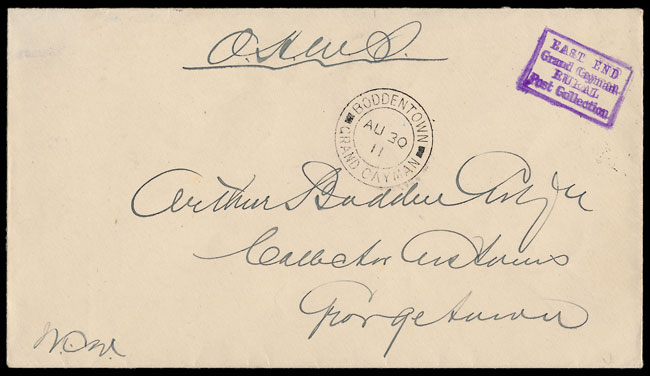 O.H.M.S.
EAST END
Grand Cayman.
RURAL
Post Collection
BODDENTOWN
AU 30
11
GRAND CAYMAN
Arthur Bodden Esqre
Collector Customs
Georgetown